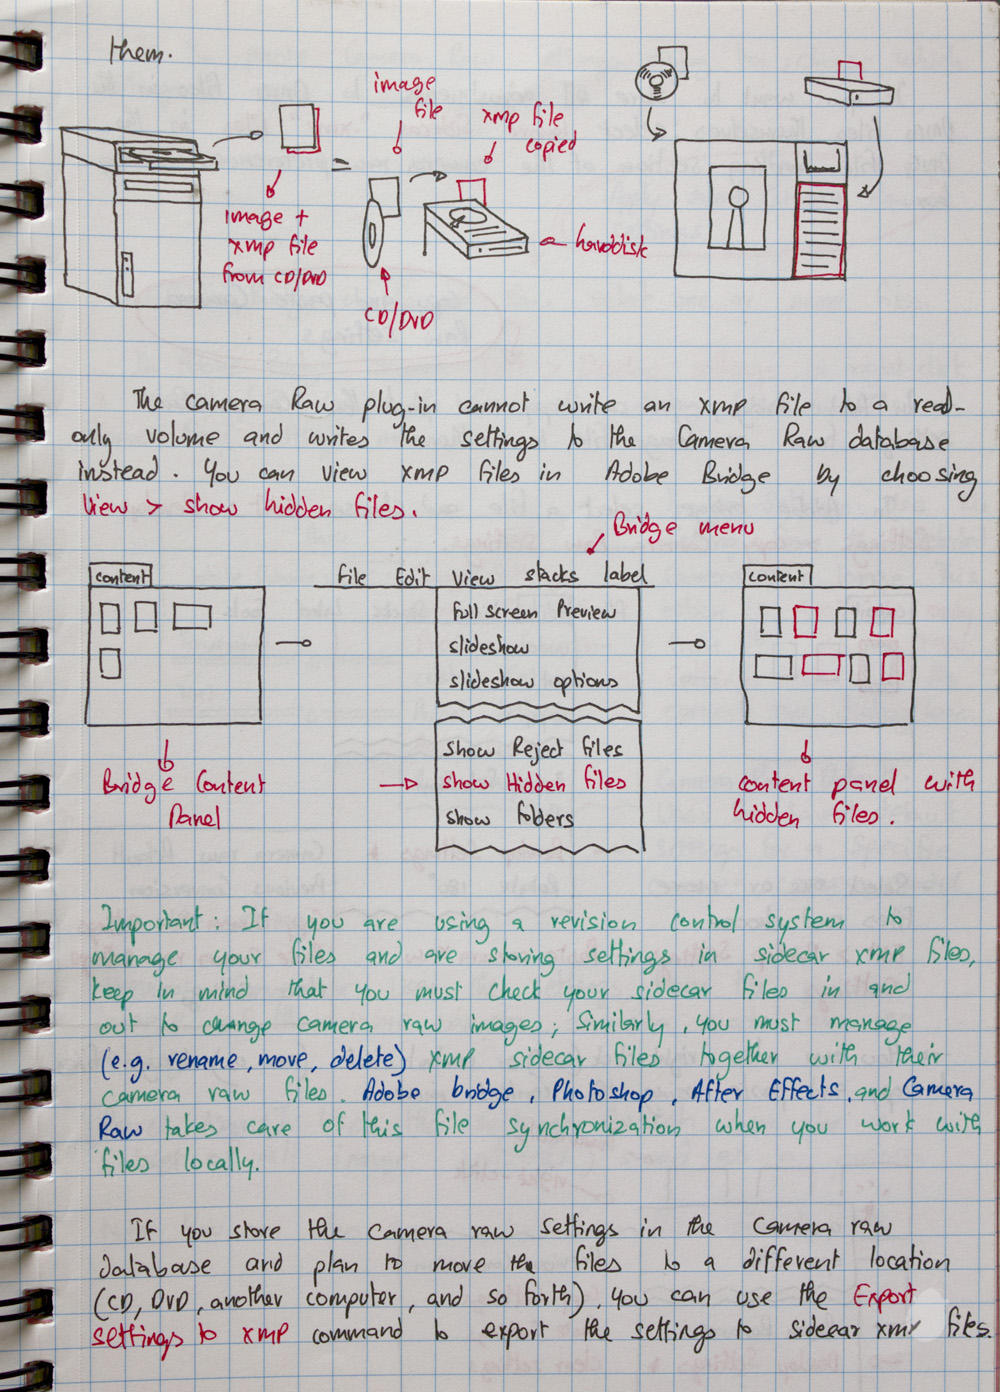 them.
image
file
xmp file
copied
=
image +
xmp file
from CD/DVD
harddisk
CD/DVD
The camera Raw plug-in cannot write an xmp file to a read-
only volume and writes the settings to the Camera Raw database
instead. You can view xmp files in Adobe Bridge by choosing
View > show hidden files.
Bridge menu
content
File Edit View stacks label
content
Full screen Preview
slideshow
slideshow options
show Reject files
show Hidden files
show folders
Bridge Content
Panel
content panel with
hidden files.
Important: If you are using a revision control system to
manage your files and are storing settings in sidecar xmp files,
keep in mind that you must check your sidecar files in and
out to change camera raw images; similarly, you must manage
(e.g. rename, move, delete) xmp sidecar files together with their
camera raw files. Adobe bridge, Photoshop, After Effects, and Camera
Raw takes care of this file synchronization when you work with
files locally.
If you store the camera raw settings in the camera raw
database and plan to move the files to a different location
(CD, DVD, another computer, and so forth), you can use the Export
settings to xmp command to export the settings to sidecar xmp files.